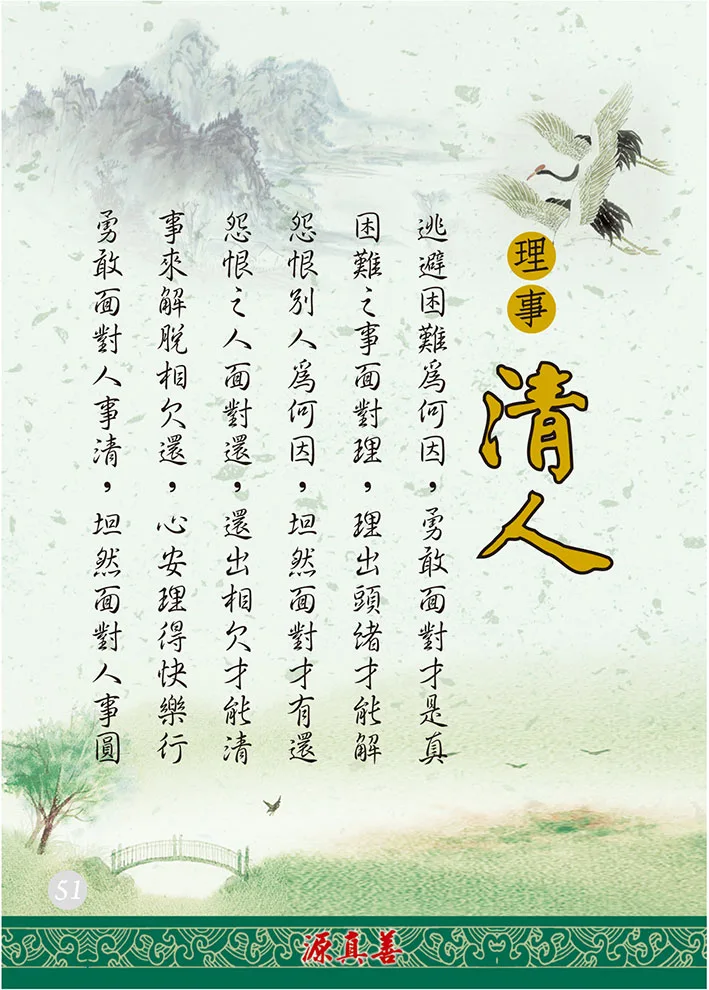 理事
清人
逃避困難為何因，勇敢面對才是真
困難之事面對理，理出頭緒才能解
怨恨別人為何因，坦然面對才有還
怨恨之人面對還，還出相欠才能清
事來解脫相欠還，心安理得快樂行
勇敢面對人事清，坦然面對人事圓
51
源真善